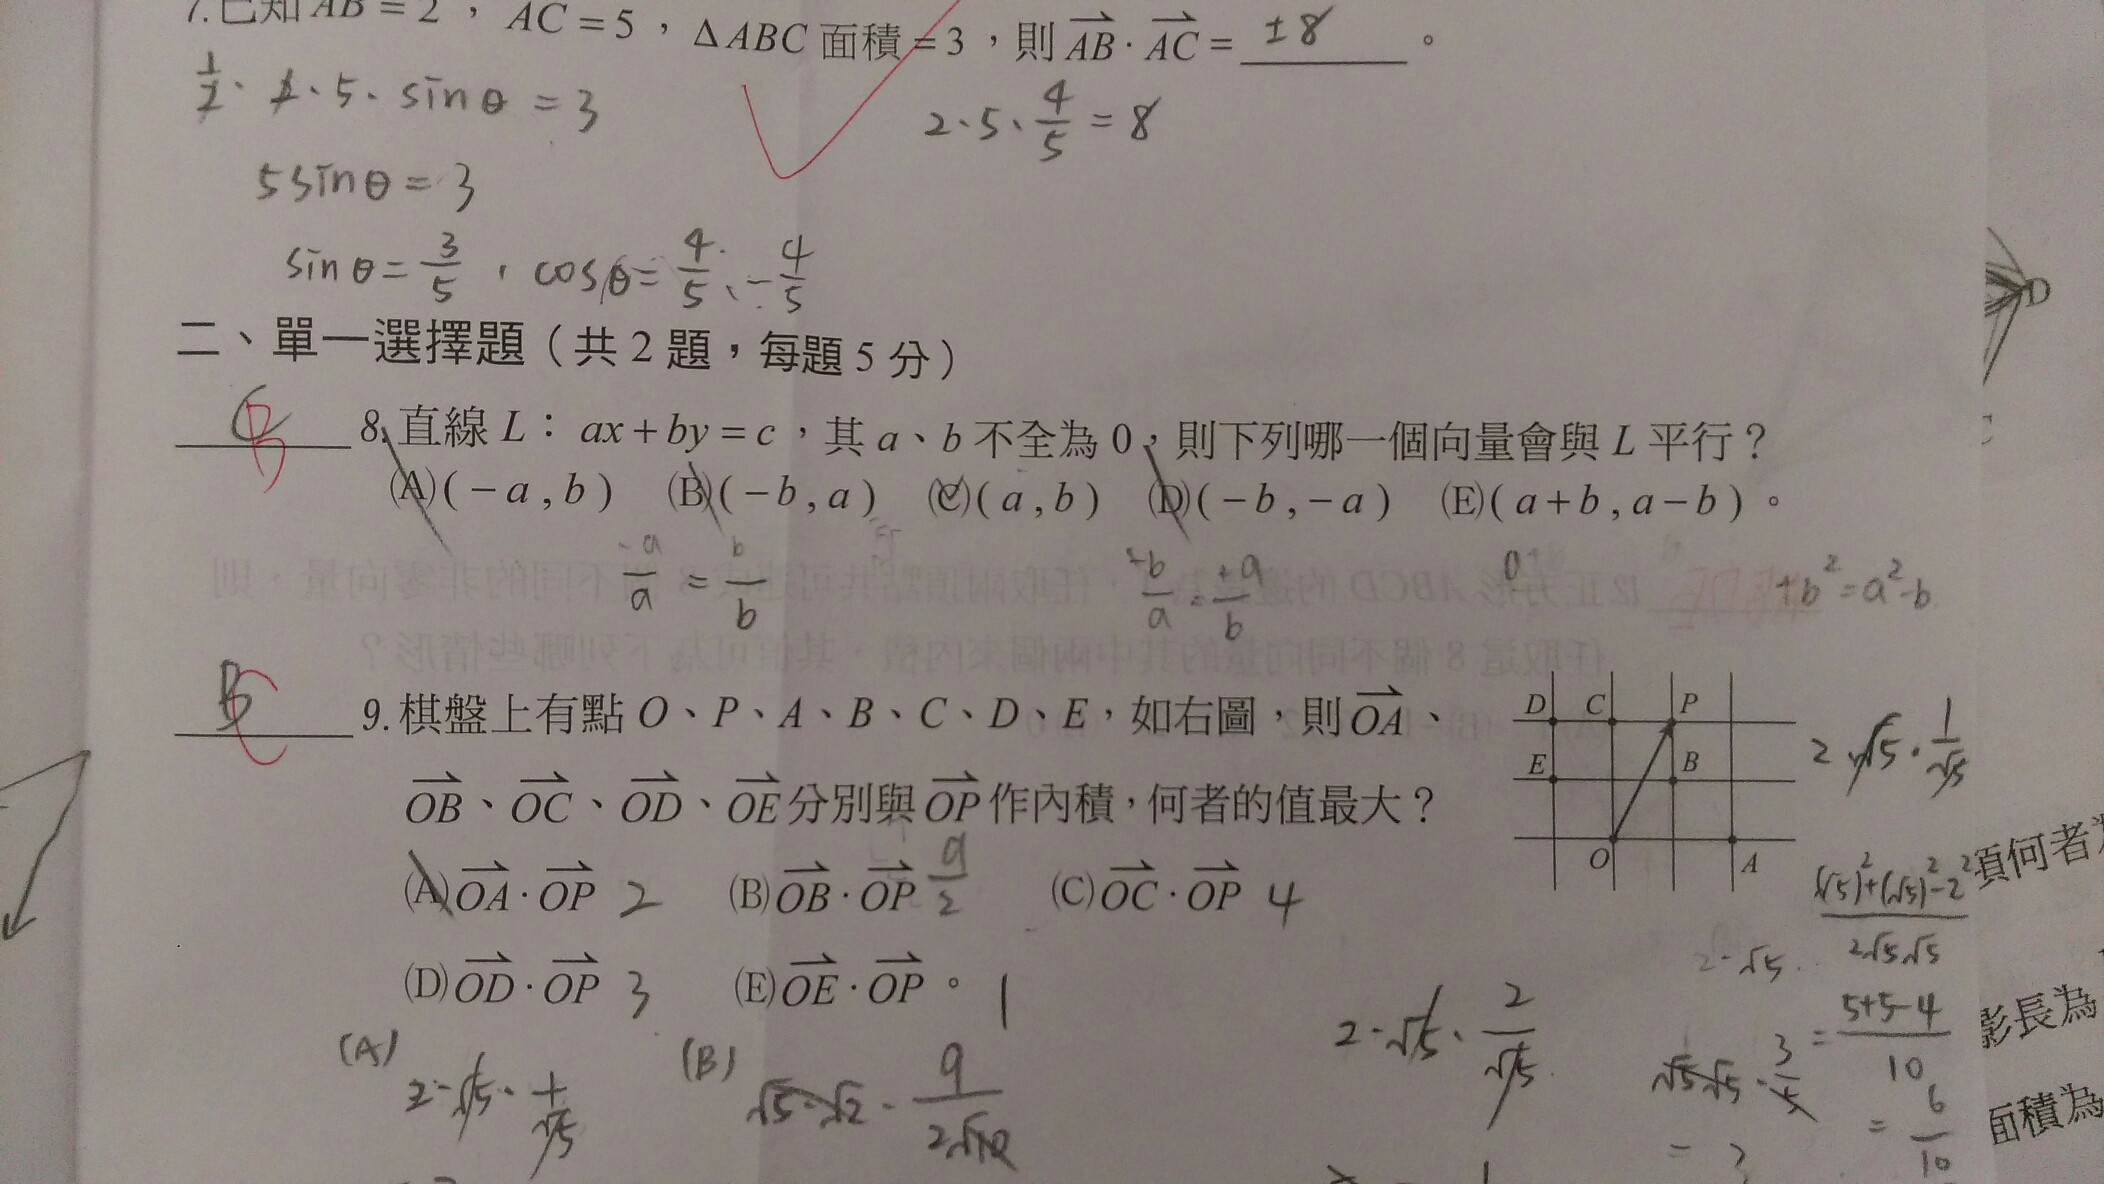 7.已知 AB = 2 , AC = 5 , ΔABC 面積 = 3 ,則 AB · AC = ±8 。
1/2 · 2 · 5 · sinθ = 3
2 · 5 · 4/5 = 8
5sinθ = 3
sinθ = 3/5 , cosθ = 4/5 、 -4/5
二、單一選擇題(共 2 題,每題 5 分)
C B 8. 直線 L: ax + by = c ,其 a、b 不全為 0 ,則下列哪一個向量會與 L 平行?
(A)( − a , b ) (B)( − b , a ) (C)( a , b ) (D)( − b , − a ) (E)( a + b , a − b ) 。
-a/a = b/b
-b/a = +a/b
+b² = a² - b
B C 9. 棋盤上有點 O、P、A、B、C、D、E,如右圖,則 OA 、
OB 、 OC 、 OD 、 OE 分別與 OP 作內積,何者的值最大?
(A) OA · OP 2 (B) OB · OP 9/2 (C) OC · OP 4
(D) OD · OP 3 (E) OE · OP 。 1
D C P
E B
O A
2 · √5 · 1/√5
(√5)² + (√5)² - 2²
2√5√5
2 · √5 ·
= 5+5-4
10
= 6/10
(A) 2 · √5 · 1/√5
(B) √5 · √2 · 9/2√10
2 · √5 · 2/√5
√5√5 · 3/5
= 3
項何者
影長為
面積為
D